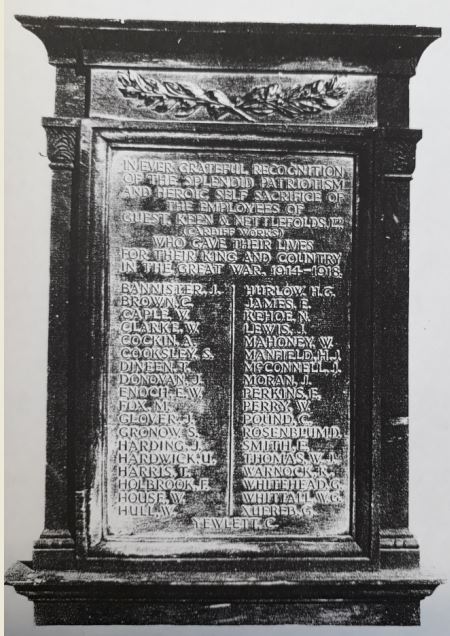 IN EVER GRATEFUL RECOGNITION
OF THE SPLENDID PATRIOTISM
AND HEROIC SELF SACRIFICE OF
THE EMPLOYEES OF
GUEST, KEEN & NETTLEFOLDS, LTD
(CARDIFF WORKS)
WHO GAVE THEIR LIVES
FOR THEIR KING AND COUNTRY
IN THE GREAT WAR, 1914–1918.
BANNISTER, J.
BROWN, C.
CAPLE, W.
CLARKE, W.
COCKIN, A.
COOKSLEY, S.
DINEEN, T.
DONOVAN, J.
ENOCH, E.W.
FOX, M.
GLOVER, J.
GRONOW, S.
HARDING, J.
HARDWICK, U.
HARRIS, T.
HOLBROOK, F.
HOUSE, W.
HULL, W.
HURLOW, H.G.
JAMES, E.
KEHOE, N.
LEWIS, J.
MAHONEY, W.
MANFIELD, H.J.
McCONNELL, J.
MORAN, J.
PERKINS, E.
PERRY, W.
POUND, C.
ROSENBUUM, D.
SMITH, E.
THOMAS, W.J.
WARNOCK, R.
WHITEHEAD, G.
WHITFALL, W.G.
XUEREB, G.
YEWLETT, C.